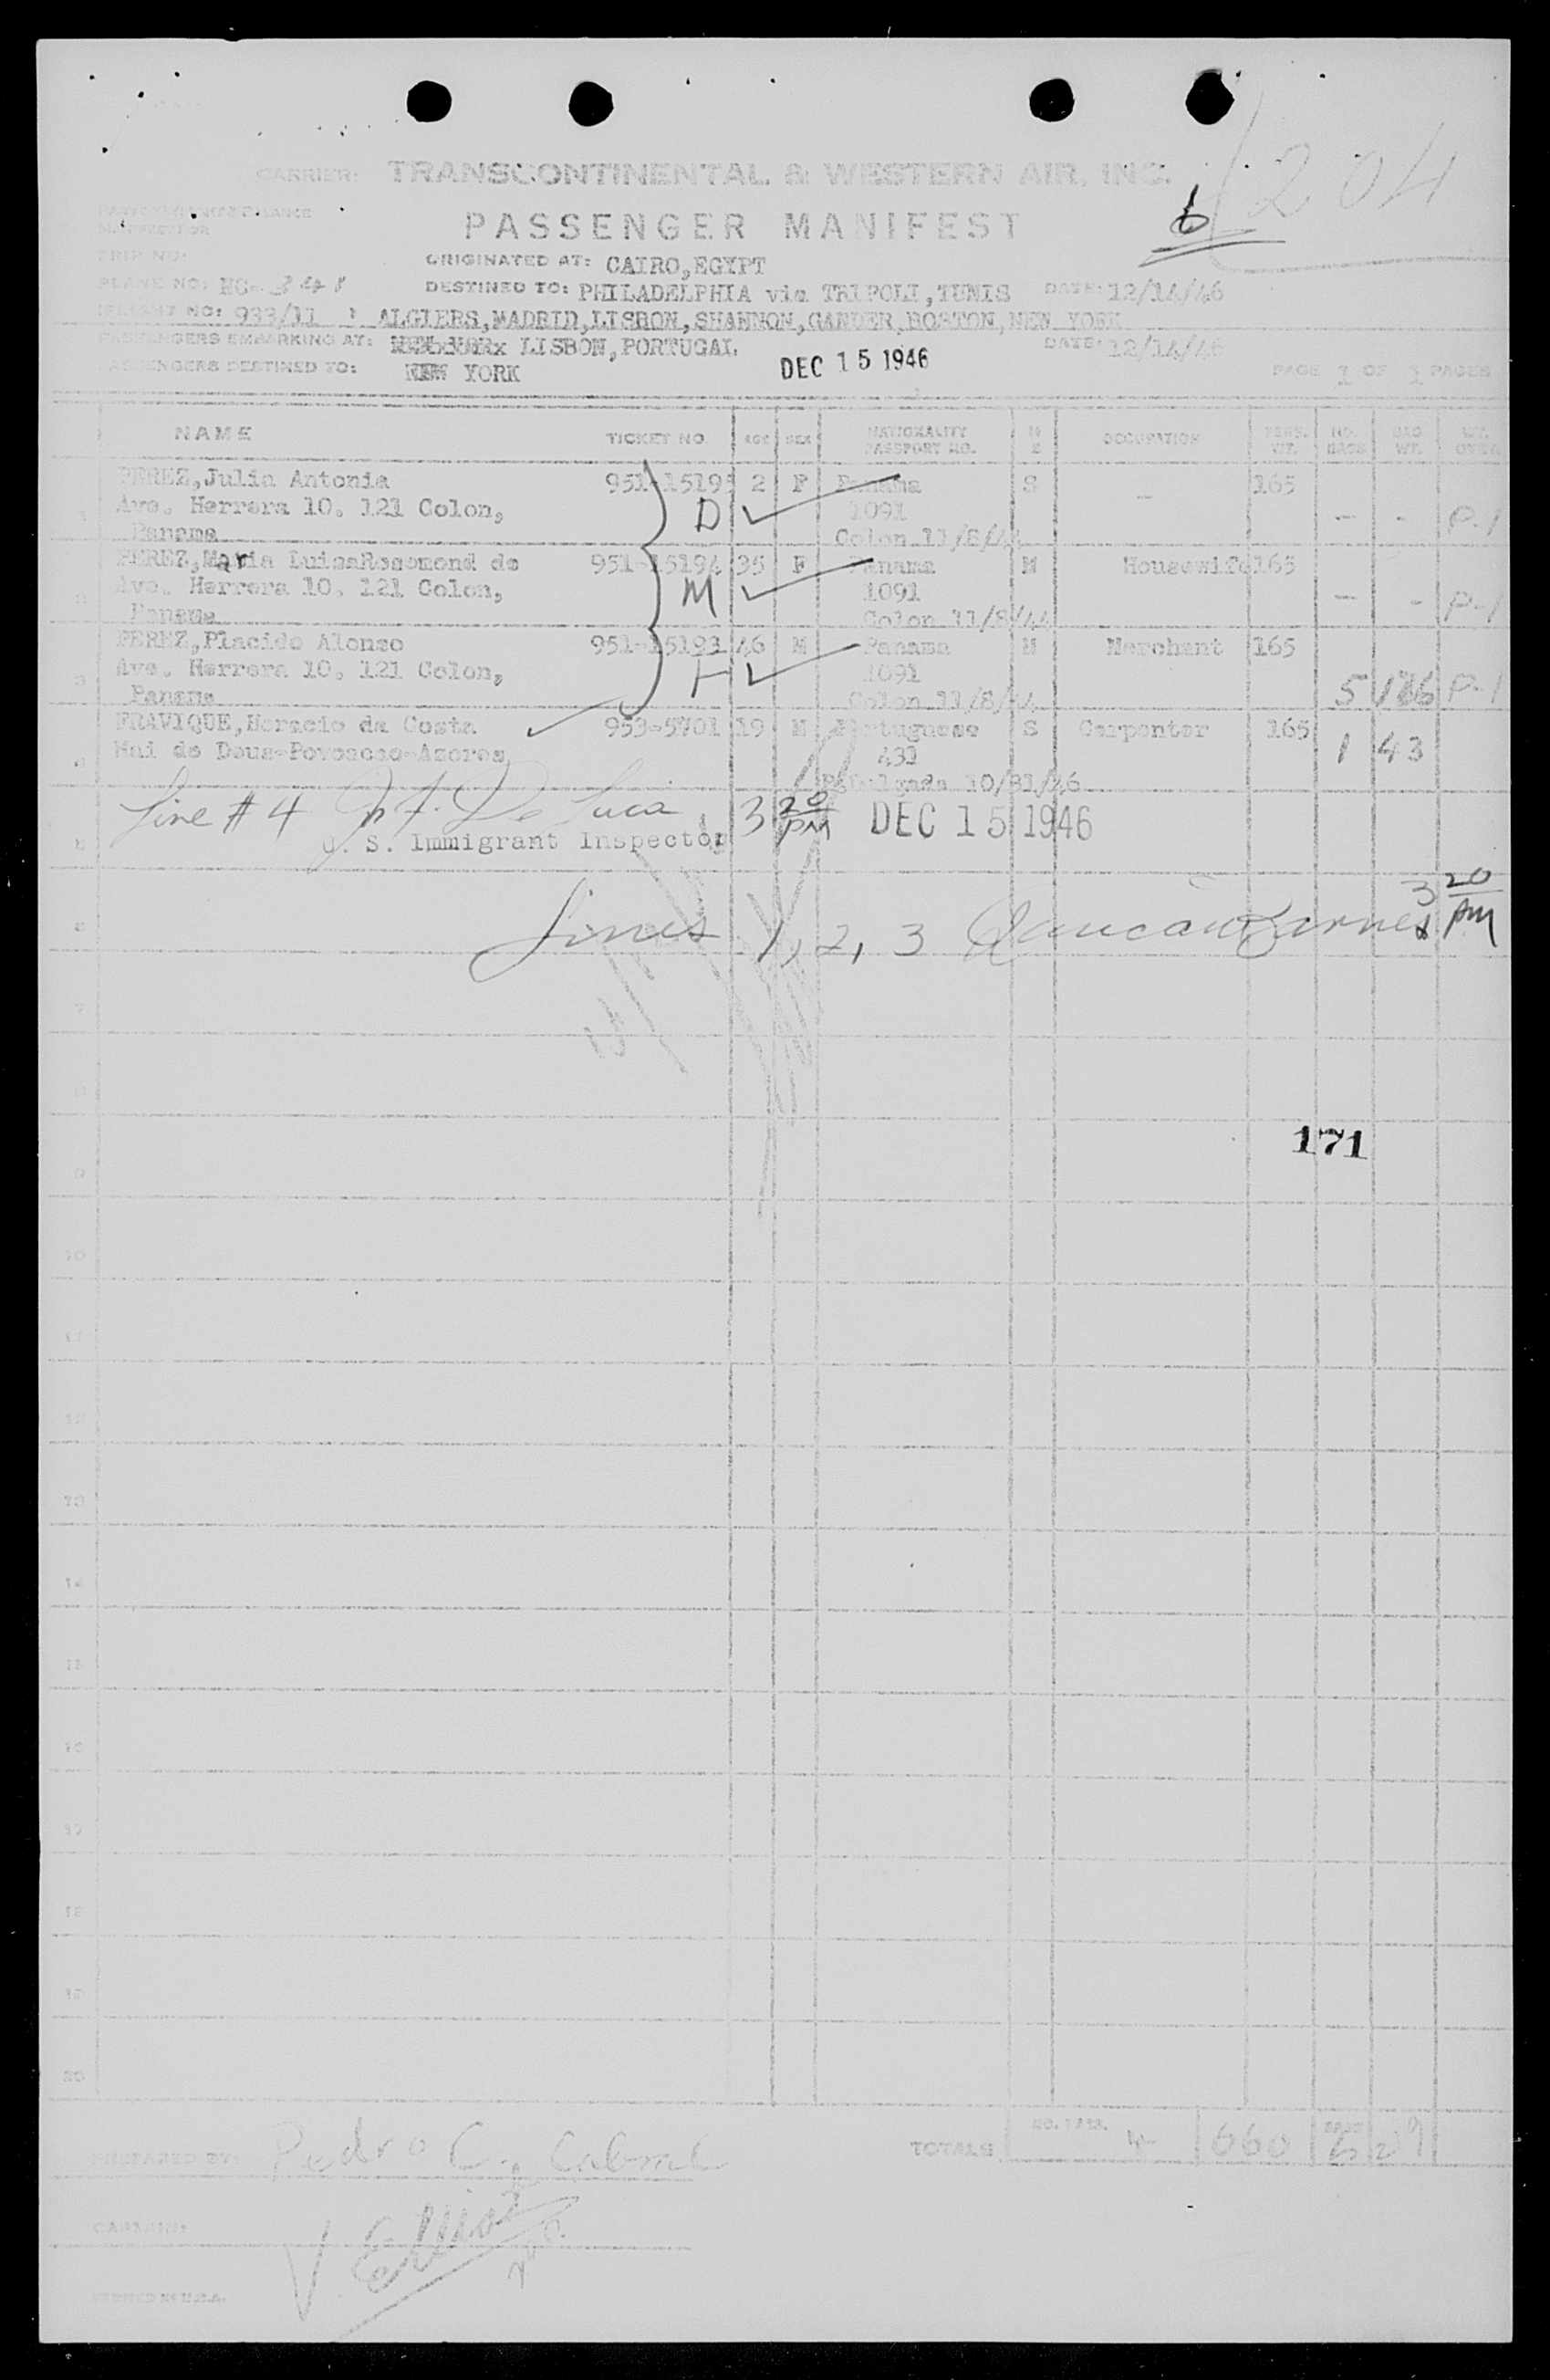 CARRIER: TRANSCONTINENTAL & WESTERN AIR, INC.
204
6
PASSENGER MANIFEST
TRIP NO:
ORIGINATED AT: CAIRO,EGYPT
PLANE NO: NC- 341
DESTINED TO: PHILADELPHIA via TRIPOLI,TUNIS DATE: 12/14/46
FLIGHT NO: 933/11 : ALGIERS,MADRID,LISBON,SHANNON,GANDER,BOSTON,NEW YORK
PASSENGERS EMBARKING AT: LISBON,PORTUGAL DATE: 12/14/46
PASSENGERS DESTINED TO: NEW YORK DEC 15 1946 PAGE 1 OF 1 PAGES
NAME TICKET NO. AGE SEX NATIONALITY PASSPORT NO. M S OCCUPATION PERS. WT. NO. BAGS BAG WT.
PEREZ,Julia Antonia 951-1519 2 F Panama S — 165
Ave. Herrera 10. 121 Colon, D 1091 — - P-1
Panama Colon 11/8/44
PEREZ,Maria LuisaRosomond de 951-15194 35 F Panama M Housewife 165
Ave. Herrera 10. 121 Colon, M 1091 — - P-1
Panama Colon 11/8/44
PEREZ,Placido Alonso 951-15193 46 M Panama M Merchant 165
Ave. Herrera 10. 121 Colon, H 1091 5 186 P-1
Panama Colon 11/8/44
FRAVIQUE,Horacio da Costa 953-5701 19 M Portuguese S Carpenter 165
Mai de Deus-Povoacao-Azores 431 1 43
10/31/46
Line # 4 De Luca 3 20 PM DEC 15 1946
U. S. Immigrant Inspector
3 20 PM
Lines 1, 2, 3
171
PREPARED BY: Pedro C. Cabral TOTALS NO. PASS. 4 660 6 229
CAPTAIN:
PRINTED IN U.S.A.